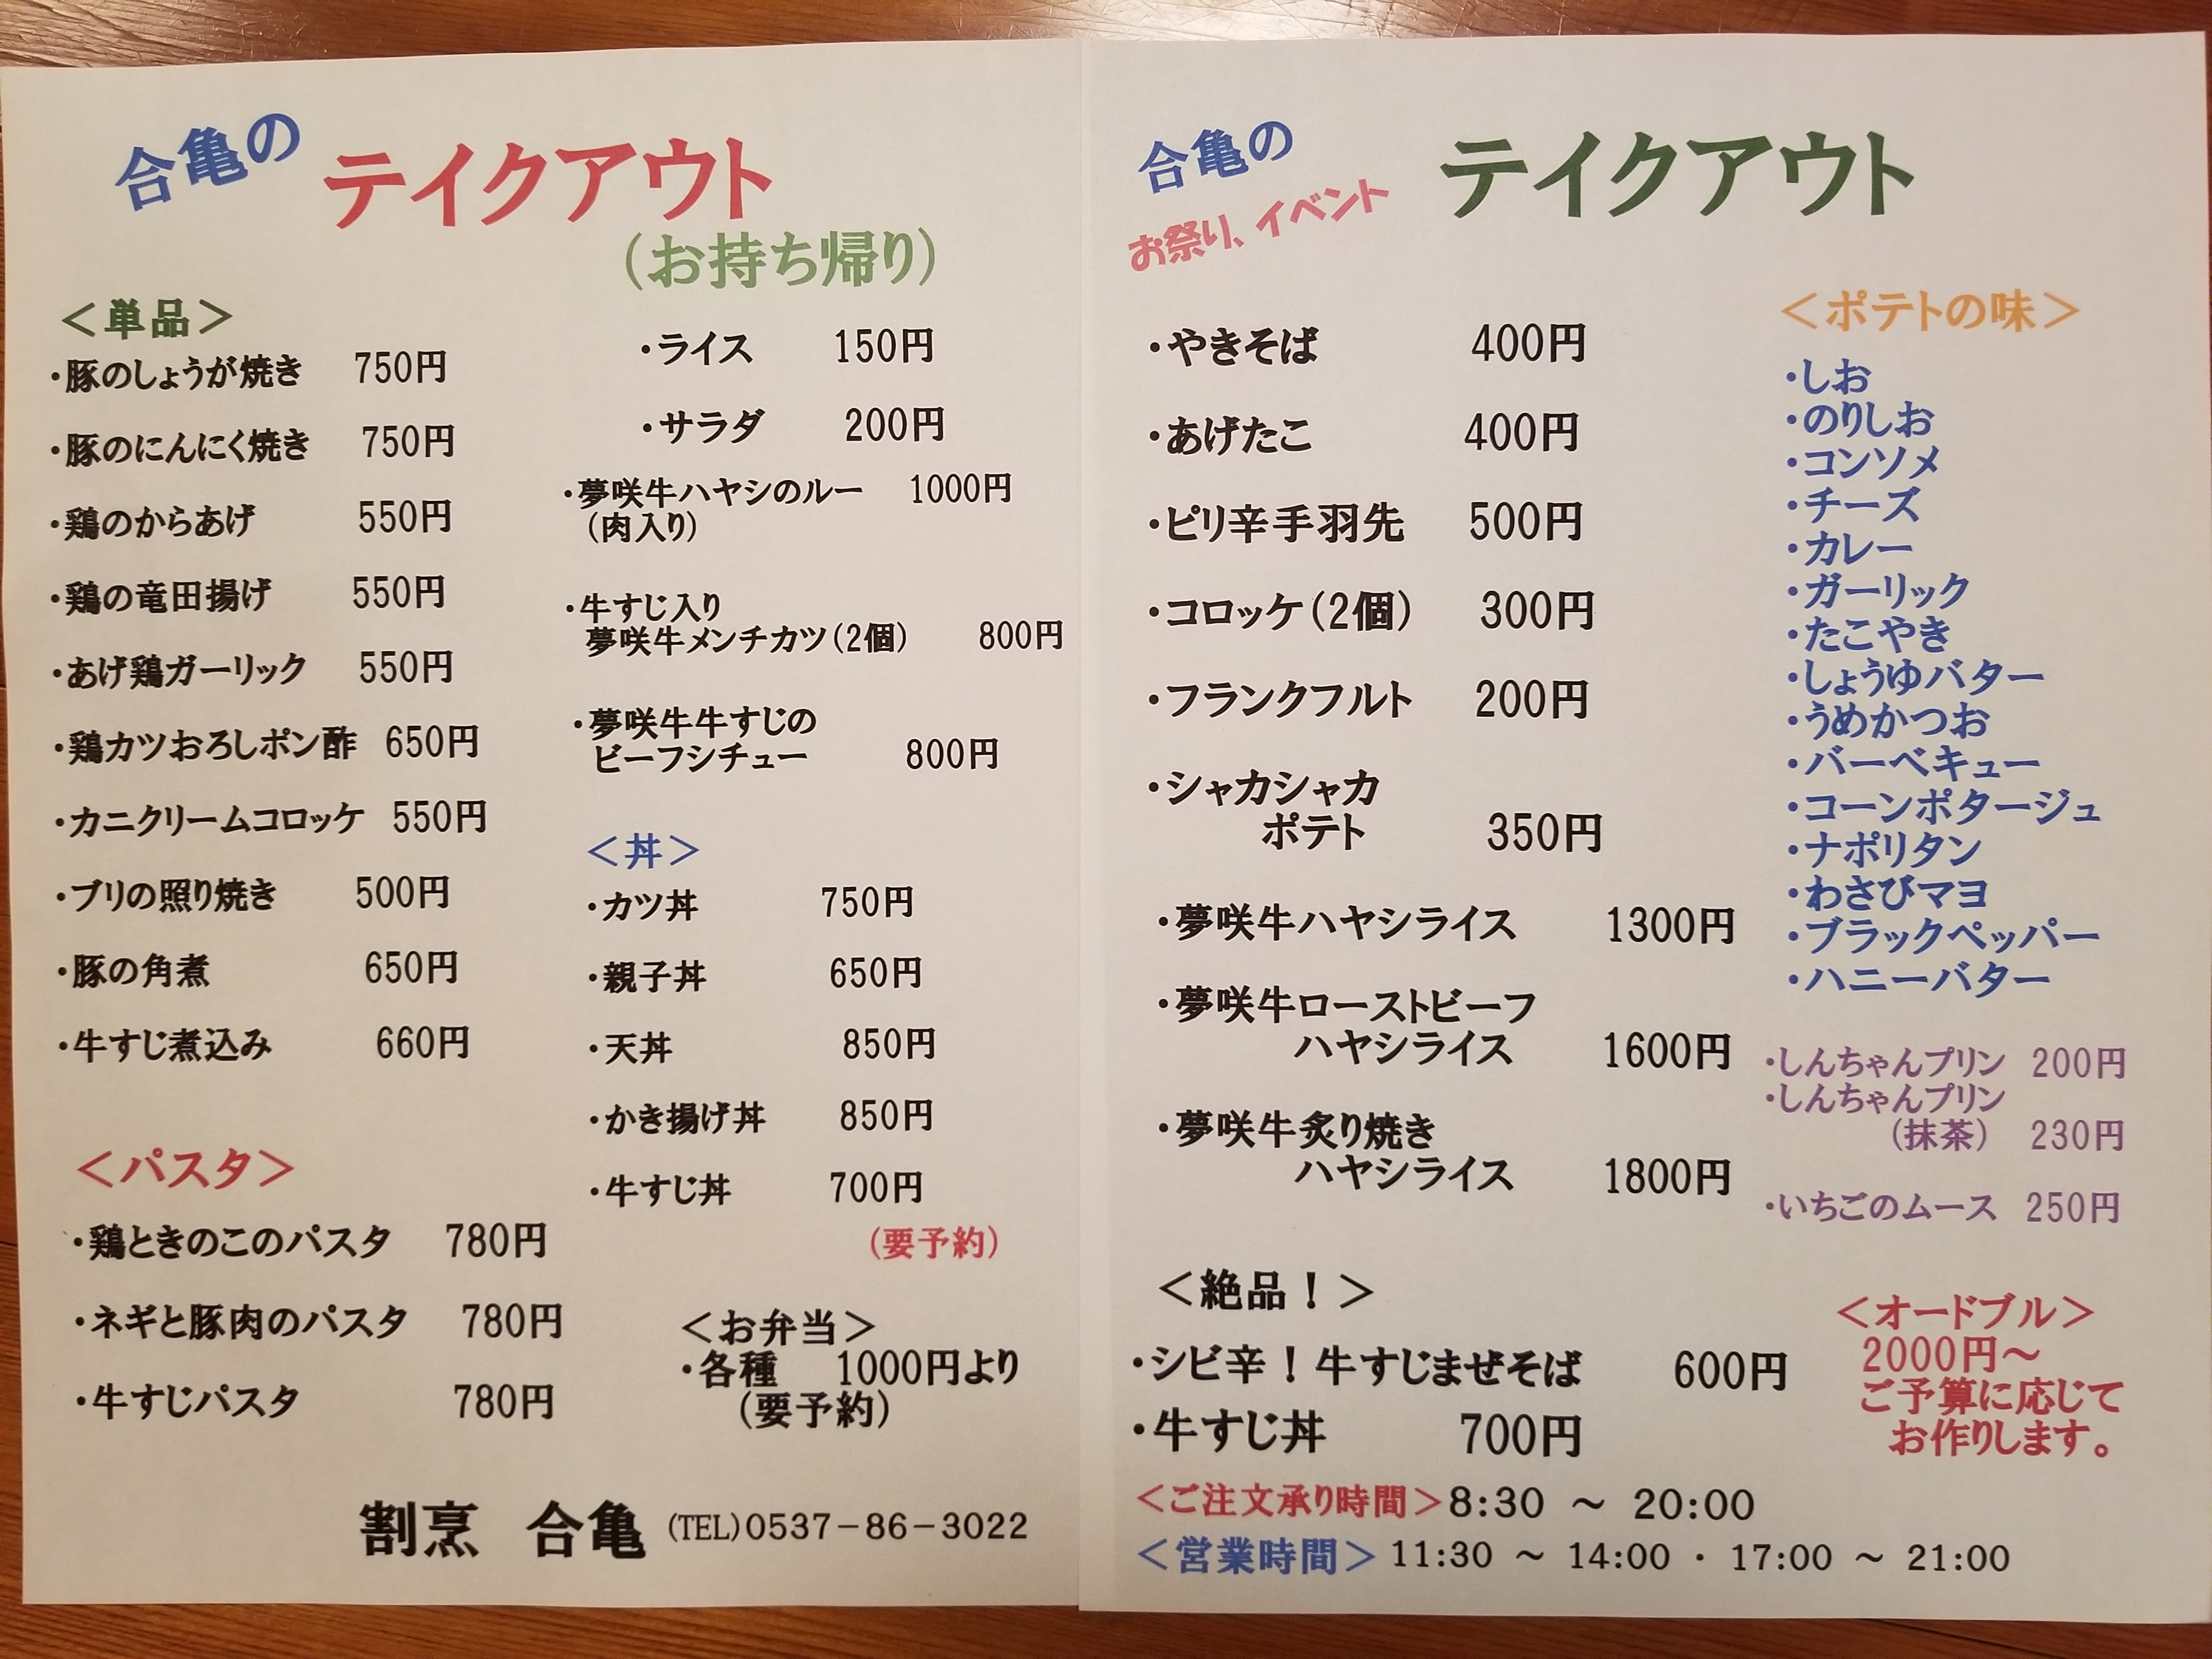 合亀の
テイクアウト
(お持ち帰り)
<単品>
・豚のしょうが焼き 750円
・豚のにんにく焼き 750円
・鶏のからあげ 550円
・鶏の竜田揚げ 550円
・あげ鶏ガーリック 550円
・鶏カツおろしポン酢 650円
・カニクリームコロッケ 550円
・ブリの照り焼き 500円
・豚の角煮 650円
・牛すじ煮込み 660円
<パスタ>
・鶏ときのこのパスタ 780円
・ネギと豚肉のパスタ 780円
・牛すじパスタ 780円
・ライス 150円
・サラダ 200円
・夢咲牛ハヤシのルー 1000円
(肉入り)
・牛すじ入り
夢咲牛メンチカツ(2個) 800円
・夢咲牛牛すじの
ビーフシチュー 800円
<丼>
・カツ丼 750円
・親子丼 650円
・天丼 850円
・かき揚げ丼 850円
・牛すじ丼 700円
(要予約)
<お弁当>
・各種 1000円より
(要予約)
割烹 合亀 (TEL)0537-86-3022
合亀の
お祭り、イベント
テイクアウト
・やきそば 400円
・あげたこ 400円
・ピリ辛手羽先 500円
・コロッケ(2個) 300円
・フランクフルト 200円
・シャカシャカ
ポテト 350円
・夢咲牛ハヤシライス 1300円
・夢咲牛ローストビーフ
ハヤシライス 1600円
・夢咲牛炙り焼き
ハヤシライス 1800円
<絶品!>
・シビ辛!牛すじまぜそば 600円
・牛すじ丼 700円
<ポテトの味>
・しお
・のりしお
・コンソメ
・チーズ
・カレー
・ガーリック
・たこやき
・しょうゆバター
・うめかつお
・バーベキュー
・コーンポタージュ
・ナポリタン
・わさびマヨ
・ブラックペッパー
・ハニーバター
・しんちゃんプリン 200円
・しんちゃんプリン
(抹茶) 230円
・いちごのムース 250円
<オードブル>
2000円~
ご予算に応じて
お作りします。
<ご注文承り時間>8:30 ~ 20:00
<営業時間> 11:30 ~ 14:00 ・ 17:00 ~ 21:00